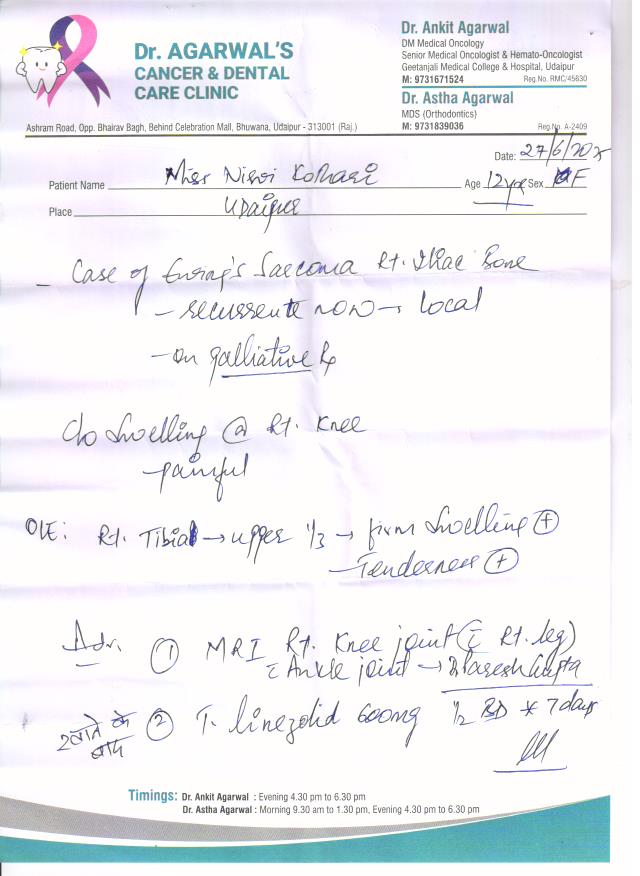 Dr. AGARWAL'S
CANCER & DENTAL
CARE CLINIC
Dr. Ankit Agarwal
DM Medical Oncology
Senior Medical Oncologist & Hemato-Oncologist
Geetanjali Medical College & Hospital, Udaipur
M: 9731671524 Reg.No. RMC/45630
Dr. Astha Agarwal
MDS (Orthodontics)
M: 9731839036 Reg.No. A-2409
Ashram Road, Opp. Bhairav Bagh, Behind Celebration Mall, Bhuwana, Udaipur - 313001 (Raj.)
Date: 27/6/2025
Patient Name Miss Kothari Age 12 yrs Sex F
Place Udaipur
- Case of Ewing's Sarcoma Rt. Iliac Bone
- recurrent now → local
- on palliative Rx
c/o Swelling @ Rt. Knee
- painful
O/E: Rt. Tibial → upper 1/3 → firm Swelling (+)
- Tenderness (+)
Adv. ① MRI Rt. Knee joint (c̄ Rt. leg)
c̄ Ankle joint → Gupta
खाने के बाद ② T. linezolid 600mg 1/2 BD * 7 days
Timings: Dr. Ankit Agarwal : Evening 4.30 pm to 6.30 pm
Dr. Astha Agarwal : Morning 9.30 am to 1.30 pm, Evening 4.30 pm to 6.30 pm